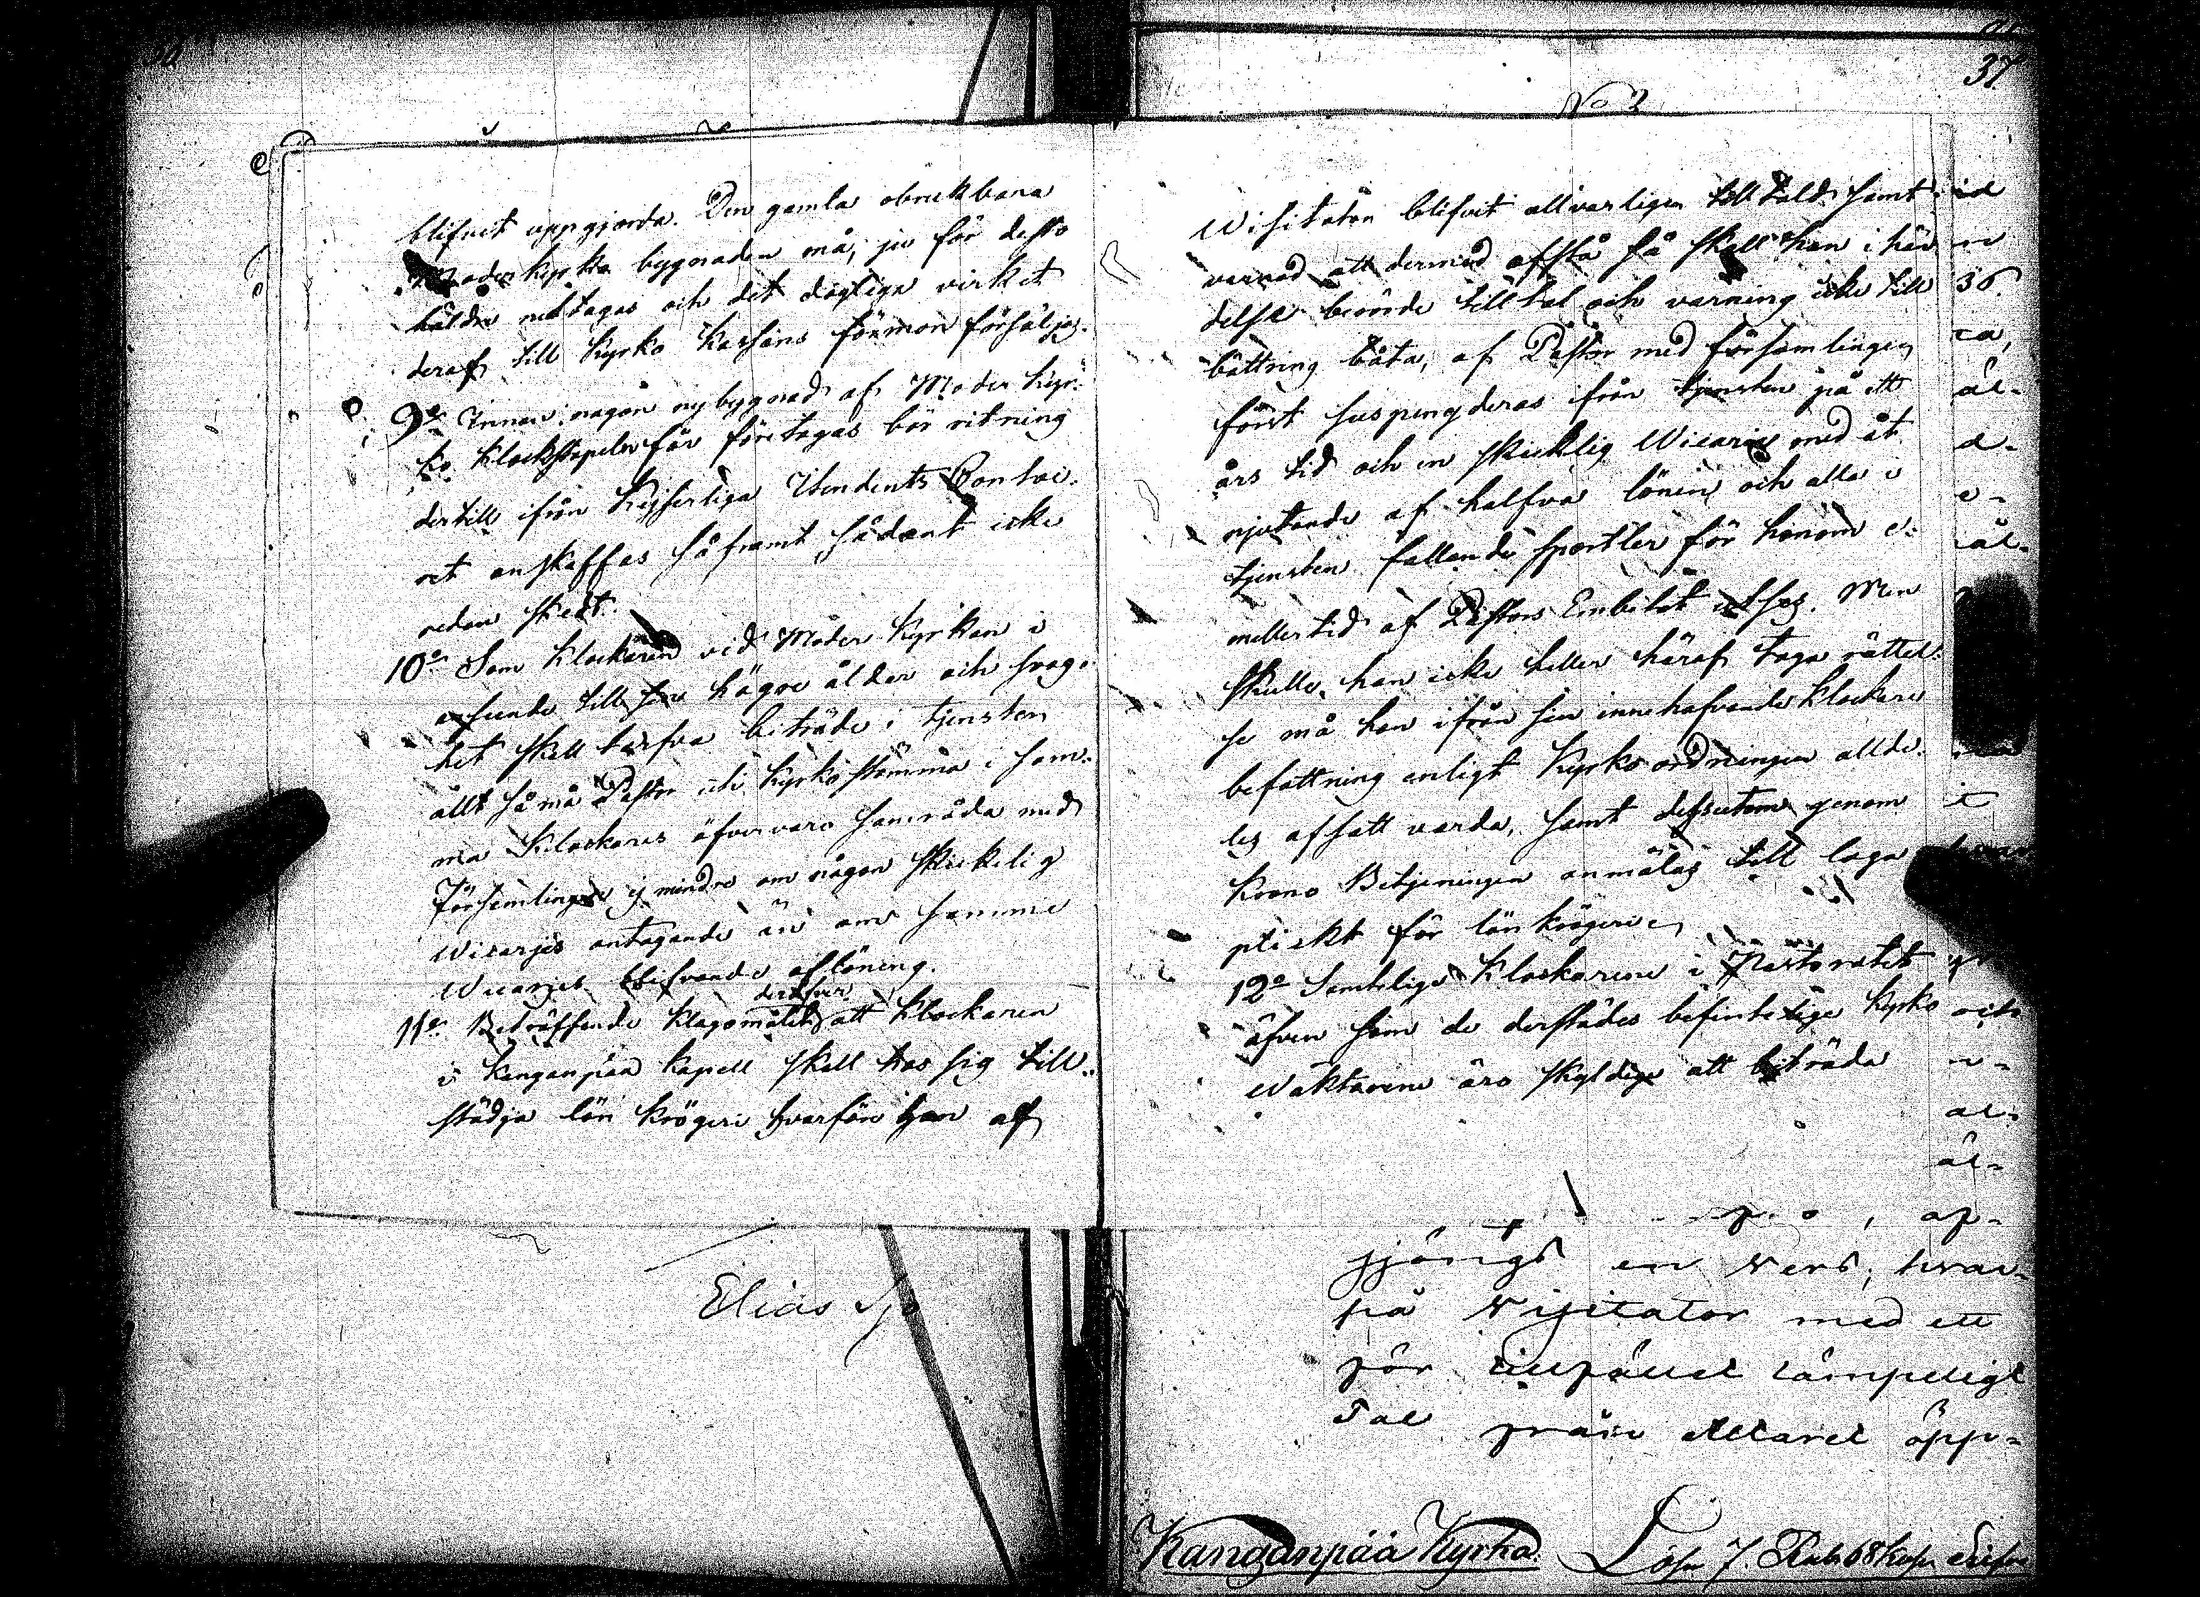 37
No 2
blifvit uppgjorda. Den gamla obrukbara
Moderkyrko bygnaden må, ju för desto
häldre nedtagas och det dugliga virket
deraf till Kyrko Kassans förmon försäljas.
9o Innan någon nybygnad af Moder Kyr-
ko Klockstapeln får företagas bör ritning
dertill ifrån Kejserliga Intendents Conto-
ret anskaffas såframt sådant icke
redan skedt.
10o Som Klockaren vid Moder Kyrkan i
anseende till högre ålder och svag-
het skall tarfva biträde i tjensten
allt så må Pastor uti Kyrkostämma i sam-
ma Klockares öfvervaro samråda med
Församlingen ej mindre om någon skickelig
Vicaries antagande än om samme
Vicaries blifvande aflöning.
11o Beträffande klagomålet deröfver att Klockaren
i Kanganpää Kapell skall hos sig till-
städja lön krögeri hvarföre han af
Visitator blifvit allvarligen till tald samt
varnad att dermed afstå så skall han i hän-
delse berörde till tal och varning icke till
bättring båta, af Pastor med församlingen
först suspenderas ifrån tjensten på ett
års tid och en skicklig Vicarius med åt
njutande af halfva lönen och alla i
tjensten fallande sportler för honom e-
mellertid af Pastors Embetet utses. Men
skulle han icke heller häraf taga rättel-
se må han ifrån sin innehafvande Klockare
befattning enligt Kyrko ordningen allde-
les afsatt varda, samt dessutom genom
Krono Betjeningen anmälas till laga
plickt för lönkrögeri
12o Samtelige Klockarene i Pastoratet
äfven som de derstädes befintelige Kyrko
Väktarene äro skyldige att biträda
Elias
en vers, hvar-
på Visitator med ett
för tillfället lämpeligt
Tal från Altaret öpp-
Kanganpää Kyrka